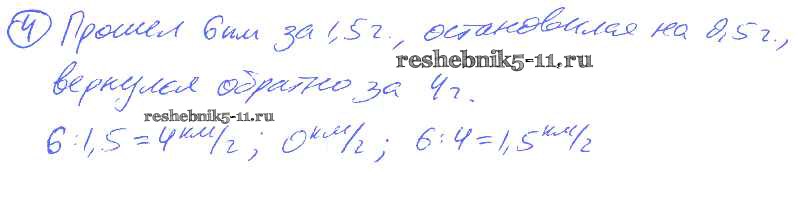 4 Прошел 6 км за 1,5 г., остановился на 0,5 г.,
reshebnik5-11.ru
вернулся обратно за 4 г.
reshebnik5-11.ru
6 : 1,5 = 4 км/г ; 0 км/г ; 6 : 4 = 1,5 км/г